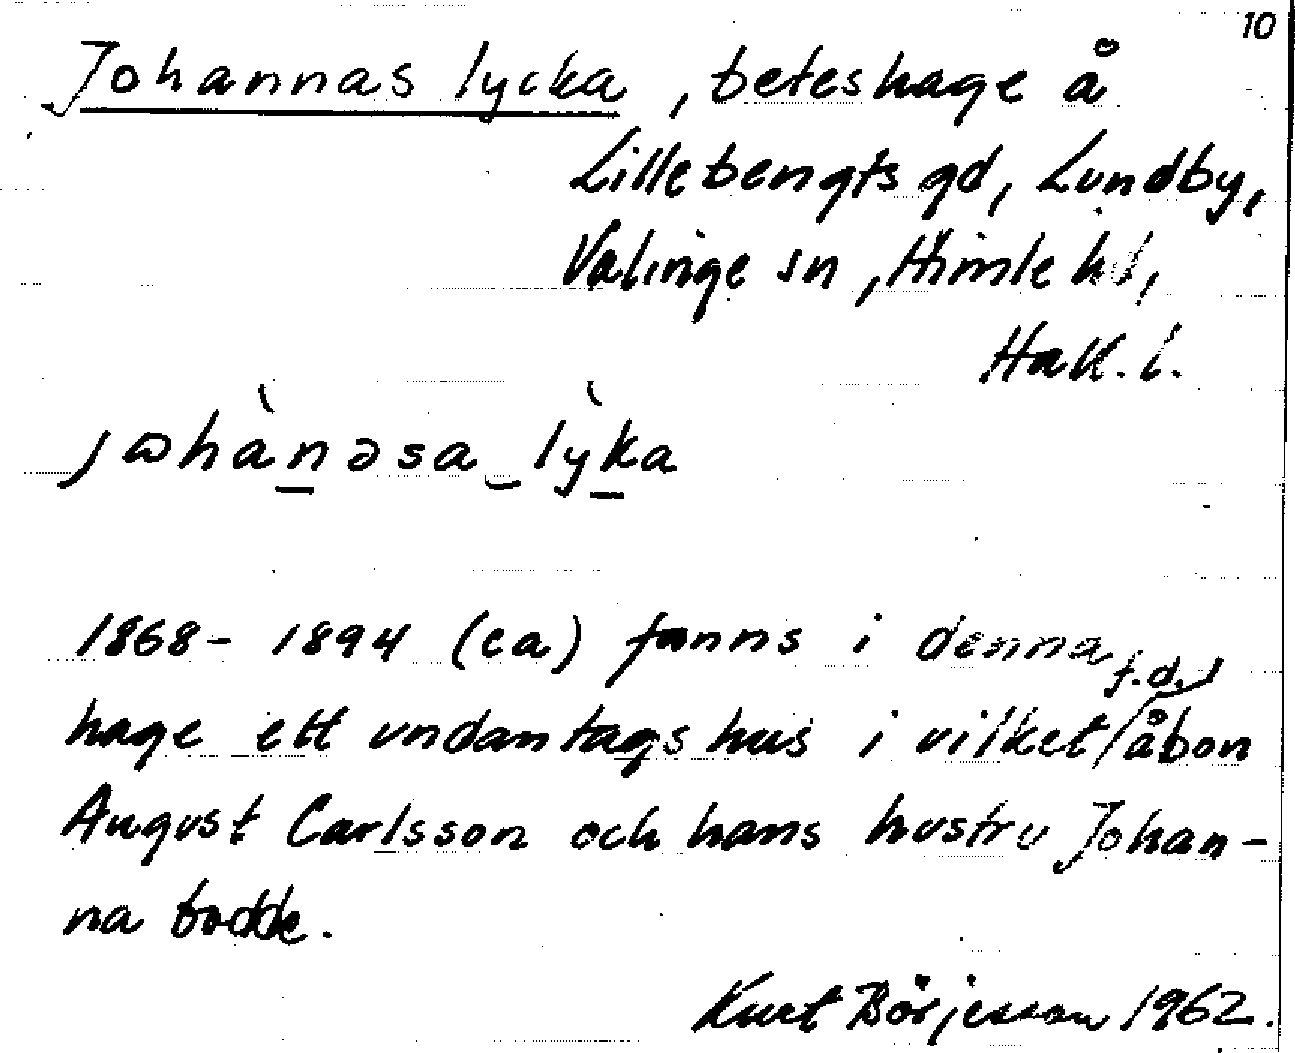 10
Johannas lycka, beteshage å
Lillebengts gd, Lundby,
Valinge sn, Himle hd,
Hall. l.
jɷhànəsa‿lỳka
1868- 1894 (ca) fanns i denna
f.d.
hage ett undantagshus i vilket / åbon
August Carlsson och hans hustru Johan-
na bodde.
Kurt Börjesson 1962.